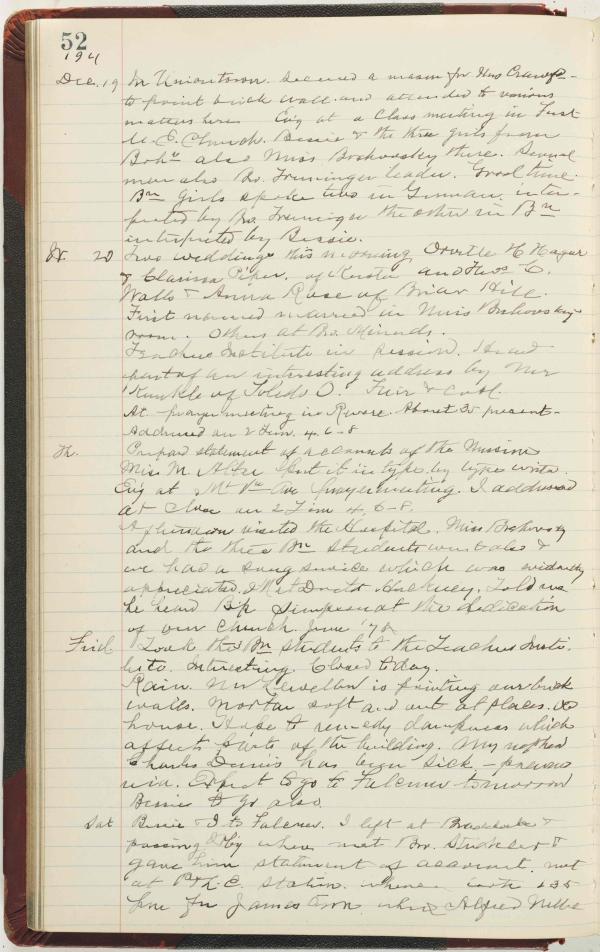 52
191
Dec. 19 In Uniontown. Secured a mason for Thos Crawf-
to point brick wall and attended to various
matters here. Evg at a Class meeting in First
M. E. Church. Bessie & the three girls from
also Miss Brohovsky there. Several
men also Bro. leader. Good time.
Bn girls spoke two in German inter-
preted by Bro. the other in Bn
interpreted by Bessie.
W. 20 Two weddings this morning Orville H Hager
& Clarissa Piper. of and Thos C.
Walls & Anna Rose of Briar Hill.
First named married in Miss Brohovsky
room. Others at Bro.
Teachers Institute in session. Heard
part of an interesting address by Mr
Kunkle of Toledo O. Fair & cool.
At prayer meeting in Revere. About 35 present.
Addressed on 2 Tim. 4, 6-8
Th. Prepared statement of accounts of the Mission
Miss M put it in type by type writer.
Evg at Mt Vn Ave prayer meeting. I addressed
at close on 2 Tim 4, 6-8.
Afternoon visited the Hospital. Miss Brohovsky
and the three Bn students went also &
we had a song service which was evidently
appreciated. Met Doctor Hackney. Told me
he heard Bp Simpson at the dedication
of our Church June '78.
Frid Took the Bn students to the Teachers Insti-
tute. Interesting. Closed today.
Rain. Mr Lewellen is pointing our brick
walls. Mortar soft and out at places.
house. Hope to remedy dampness which
affects parts of the building. My nephew
Charles Dennis has been sick - pneumo
nia. Expect to go to Falconer tomorrow
Bessie to go also.
Sat Bessie & I to Falconer. I left at Braddock &
passing where met Bro. &
gave him statement of account. met
at P & L. E. Station. whence took 135
for Jamestown where Alfred